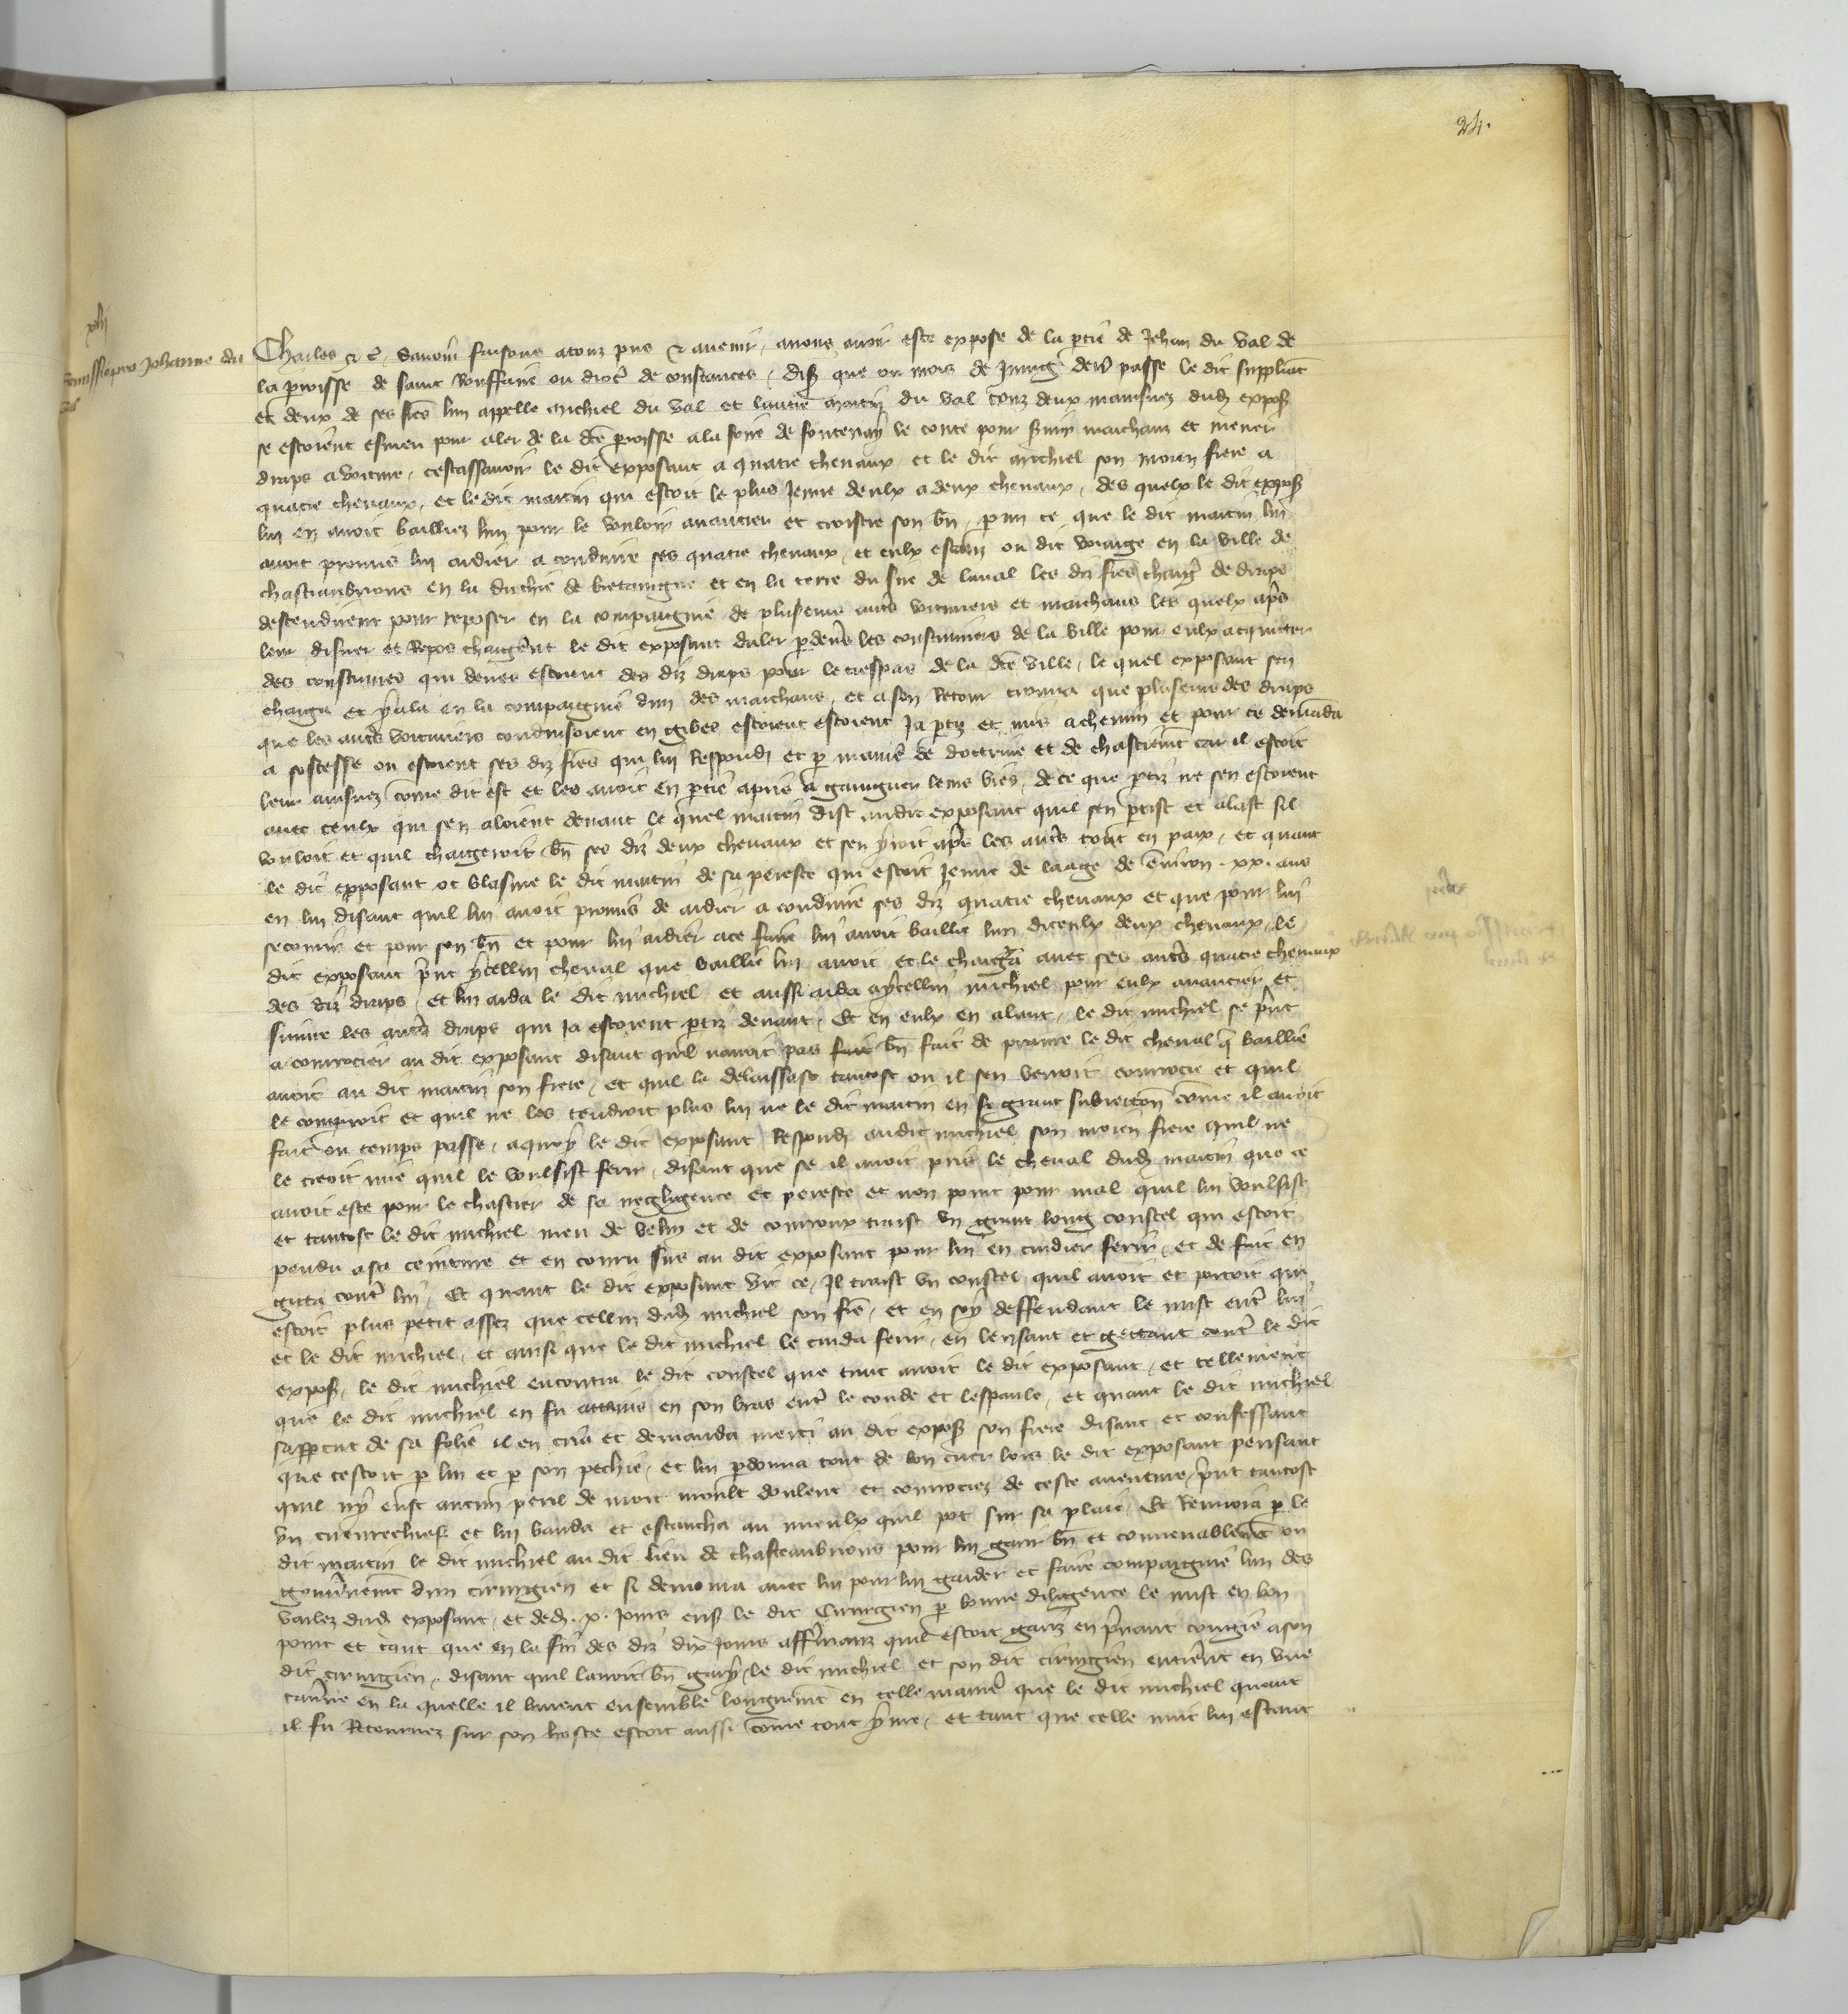 24.
xlij
Remissio pro Johanne du
Val
Charles &c. Savoir faisons a touz pns & avenir, avons avoir este expose de la ptie de Jehan du Val de
la proisse de saint Rouffarie ou dioc de constances, disz que ou mois de Juing derr passe le dit suppliat
et deux de ses fres lun appelle Michiel du Val et lautre Martin du Val touz deux mainsnez dud expos
se estoient esmeu pour aler de la dte proisse a la foire de fontenay le conte pour svir marchanz et mener
draps a voiture, cestassavoir le dit exposant a quatre chevaux, et le dit Michiel son moien frere a
quatre chevaux, et le dit Martin qui estoit le plus Jenne deulx a deux chevaux, des quelx le dit expos
lui en avoit bailliez lun pour le vouloir avancier et croistre son bn, pmi ce que le dit Martin lui
avoit promis lui aidier a conduire ses quatre chevaux, et eulx estanz ou dit voiaige en la ville de
chasteaubrions en la duchie de bretaingne et en la terre du sire de laval les diz fres charg de draps
descendirent pour reposer en la compaignie de pluseurs auts voituriers et marchans les quelx aps
leur disner et Repos chargerent le dit exposant daler pdevs les constumiers de la ville pour eulx acquiter
des coustumes qui deves estoient des diz draps pour le trespas de la dte ville, le quel exposant sen
charga et y ala en la compaignie dun des marchans, et a son Retour trouva que pluseurs des draps
que les auts voituriers conduisoient en gibes estoient estoient Ja ptiz et mis a chemin et pour ce demada
a sostesse ou estoient ses diz fres qui lui Respond et p maniere de doctrine et de chastiemt car il estoit
leur ainsnez come dit est et les avoit en ptie apris a gaingner leurs vies, de ce que ptiz ne sen estoient
avec ceulx qui sen aloient devant le quel Martin dist audit exposant quil sen ptist et alast sil
vouloit et quil chargeroit bn ses diz deux chevaux et sen yroit aps les auts tout en paix, et quant
le dit exposant ot blasme le dit Martin de sa peresce qui estoit Jenne de laage de environ .xx. ans
en lui disant quil lui avoit promis de aidier a conduire ses diz quatre chevaux et que pour lui
secourir et pour son bn et pour lui aidier a ce faire lui avoit baillie lun diceulx deux chevaux, le
dit exposant print ycellui cheval que baillie lui avoit et le charga avec ses auts quatre chevaux
des diz draps, et lui aida le dit Michiel, et aussi aida a ycellui Michiel pour eulx avancier et
suivre les auts draps qui Ja estoient ptiz devant, Et en eulx en alant, le dit Michiel se print
a courrocier au dit exposant disant quil navoit pas fait bn fait de prenre le dit cheval q baillie
avoit au dit Martin son frere, et quil le delaissast tantost ou il sen verroit courrocie et quil
le comparroit et quil ne les tendroit plus lui ne le dit Martin en si grant subiection come il avoit
fait ou temps passe, a quoy le dit exposant Respond audit Michiel son moien frere quil ne
le creoit mie quil le voulsist ferir, disant que se il avoit pris le cheval dud Martin que ce
avoit este pour le chastier de sa negligence et peresce et non point pour mal quil lui voulsist
et tantost le dit Michiel meu de velin et de courroux traist un grant long coustel qui estoit
pendu a sa ceinture et en couru sus au dit exposant pour lui en cuidier ferir, et de fait en
gitta contr lui, Et quant le dit exposant vit ce, Il traist un coustel quil avoit et portoit qui
estoit plus petit assez que cellui dud Michiel son fre, et en soy deffendant le mist entr lui
et le dit Michiel, et ainsi que le dit Michiel le cuida ferir, en lensant et gettant contr le dit
expos, le dit Michiel encontra le dit coustel que trait avoit le dit exposant, et tellement
que le dit Michiel en fu attains en son bras entr le coude et lespaule, et quant le dit Michiel
sapperceut de sa folie il en cria et demanda merci au dit expos son frere disant et confessant
que cestoit p lui et p son pechie, et lui pdonna tout de bon cuer lors le dit exposant pensant
quil ny eust aucun peril de mort moult doulent et courrociez de ceste aventure, print tantost
un cuevrechief et lui banda et estancha au mieulx quil pot sur sa plaie, Et Renvoia p le
dit Martin le dit Michiel au dit lieu de chasteaubrions pour lui garir bn et convenablemt ou
gouvnemt dun cirurgien et si demoura avec lui pour lui garder et faire compaignie lun des
varlez dud exposant, et ded .x. Jours ens le dit Cirurgien p bonne diligence le mist en bon
point et tant que en la fin des diz dix Jours affermanz quil estoit gariz en prenant congie a son
dit cirurgien, disant quil lavoit bn gary, le dit Michiel et son dit cirurgien entrerent en une
taverne en la quelle il burent ensemble longuemt en telle manier que le dit Michiel quant
il fu Retournez sur son hoste estoit aussi come tout yvre, et tant que celle nuit lui estant